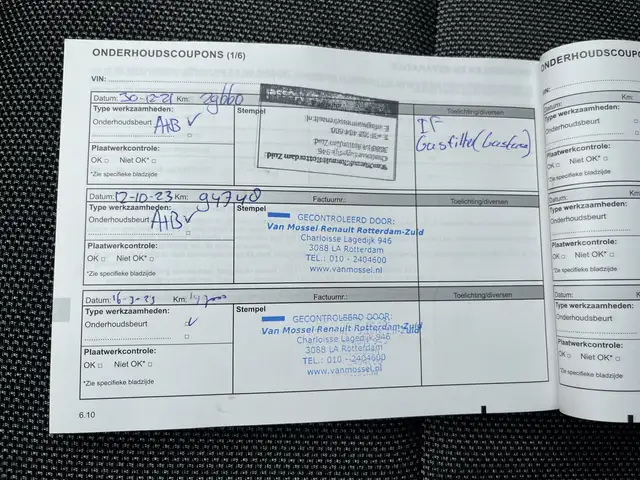 ONDERHOUDSCOUPONS (1/6)
VIN:
Datum: 30-12-21 Km:
Type werkzaamheden:
Onderhoudsbeurt A+B ✓
Stempel
Toelichting/diversen
IF
Gasfilter
Plaatwerkcontrole:
OK □ Niet OK* □
*Zie specifieke bladzijde
Datum: 12-10-23 Km: 94748
Factuurnr.:
Toelichting/diversen
Type werkzaamheden:
Onderhoudsbeurt A+B ✓
Stempel
GECONTROLEERD DOOR:
Van Mossel Renault Rotterdam-Zuid
Charloisse Lagedijk 946
3088 LA Rotterdam
TEL.: 010 - 2404600
www.vanmossel.nl
Plaatwerkcontrole:
OK □ Niet OK* □
*Zie specifieke bladzijde
Datum: Km:
Factuurnr.:
Toelichting/diversen
Type werkzaamheden:
Onderhoudsbeurt ✓
Stempel
GECONTROLEERD DOOR:
Van Mossel Renault Rotterdam-Zuid
Charloisse Lagedijk 946
3088 LA Rotterdam
TEL.: 010 - 2404600
www.vanmossel.nl
Plaatwerkcontrole:
OK □ Niet OK* □
*Zie specifieke bladzijde
6.10
ONDERHOUDSCOUPON
VIN:
Datum:
Type werkzaamheden:
Onderhoudsbeurt
Plaatwerkcontrole:
OK □ Niet OK* □
*Zie specifieke bladzijde
Datum:
Type werkzaamheden:
Onderhoudsbeurt
Plaatwerkcontrole:
OK □ Niet OK* □
*Zie specifieke bladzijde
Datum:
Type werkzaamheden:
Onderhoudsbeurt
Plaatwerkcontrole:
OK □ Niet OK* □
*Zie specifieke bladzijde